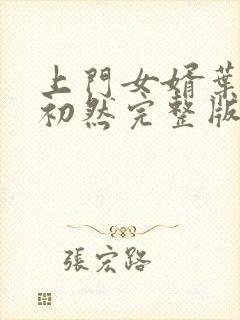 上門女婿葉
初然完整版
張宏路